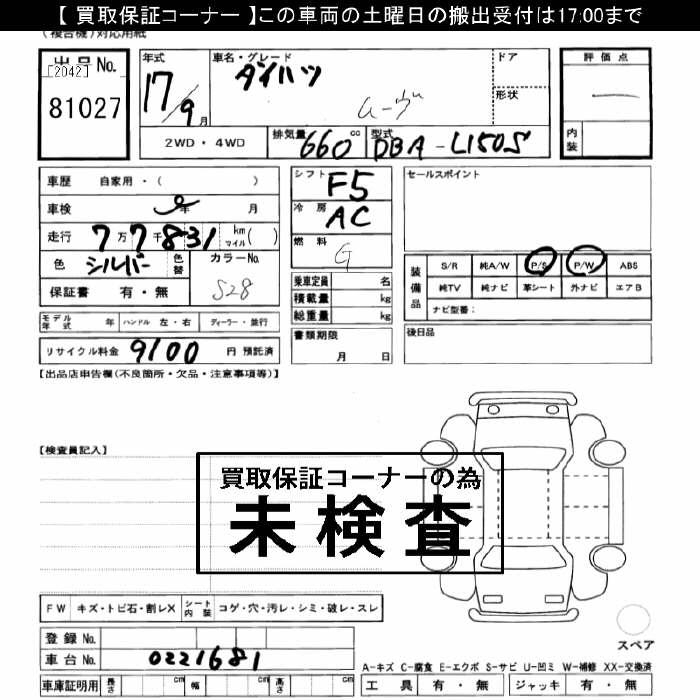 【 買取保証コーナー 】この車両の土曜日の搬出受付は17:00まで
(複合機)対応用紙
出品No.
[2042]
81027
年式
17/9月
車名・グレード
ダイハツ
ムーヴ
ドア
形状
評価点
内装
2WD・4WD
排気量 660cc
型式 DBA-L150S
車歴 自家用・( )
車検 年 月
走行 7万7千831 km マイル( )
色 シルバー
色替
カラーNo.
S28
保証書 有・無
シフト F5
冷房 AC
燃料 G
乗車定員 名
積載量 kg
総重量 kg
セールスポイント
装備品
S/R 純A/W P/S P/W ABS
純TV 純ナビ 革シート 外ナビ エアB
ナビ型番:
モデル年式 年 ハンドル 左・右 ディーラー・並行
リサイクル料金 9100 円 預託済
書類期限
月 日
後日品
【出品店申告欄(不良箇所・欠品・注意事項等)】
【検査員記入】
買取保証コーナーの為
未検査
FW キズ・トビ石・割レX シート内装 コゲ・穴・汚レ・シミ・破レ・スレ
登録No.
車台No. 0221681
スペア
A-キズ C-腐食 E-エクボ S-サビ U-凹ミ W-補修 XX-交換済
車庫証明用 長さ cm 幅 cm 高さ cm
工具 有・無 ジャッキ 有・無